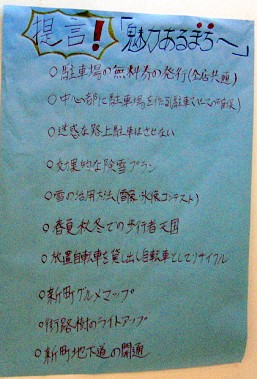 提言!「魅力あるまち〜」
○駐車場の無料券の発行(全店共通)
○中心部に駐車場を作る(駐車
○迷惑な路上駐車はさせない
○効果的な除雪プラン
○雪の活用方法(雪像・氷像コンテスト)
○春夏秋冬での歩行者天国
○放置自転車を貸し出し自転車としてリサイクル
○新町グルメマップ
○街路樹のライトアップ
○新町地下道の開通